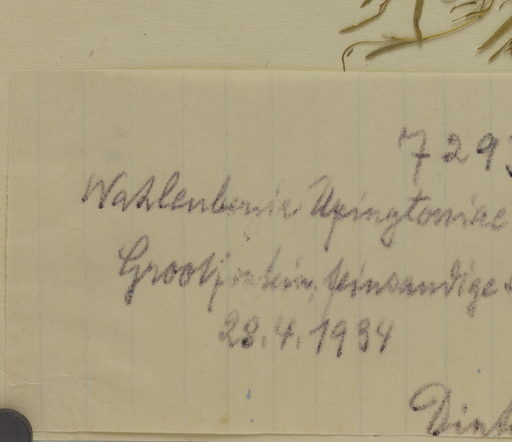 7293
Wahlenbergia Upingtoniae
Grootfontein, feinsandige
28.4.1934
Dint